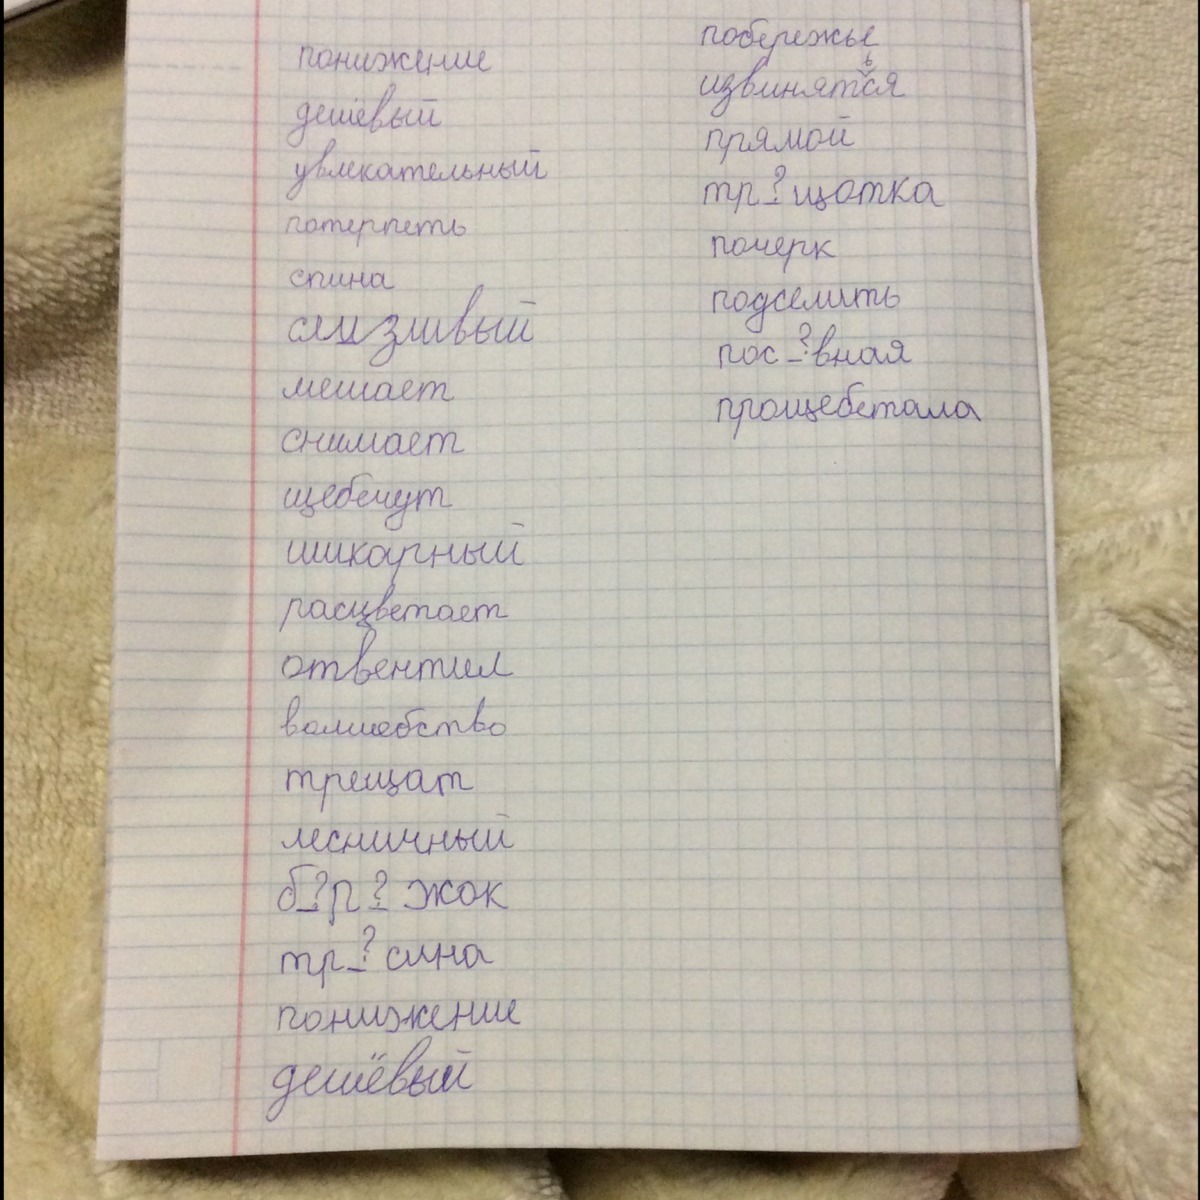 понижение
дешёвый
увлекательный
потерпеть
спина
слизливый
мешает
снимает
щебечут
шикарный
расцветает
отвентил
волшебство
трещат
лесничный
б_?р_?жок
тр_?сина
понижение
дешёвый
побережье
извинятьcя
прямой
тр_?щотка
почерк
подселить
пос_?вная
прощебетала